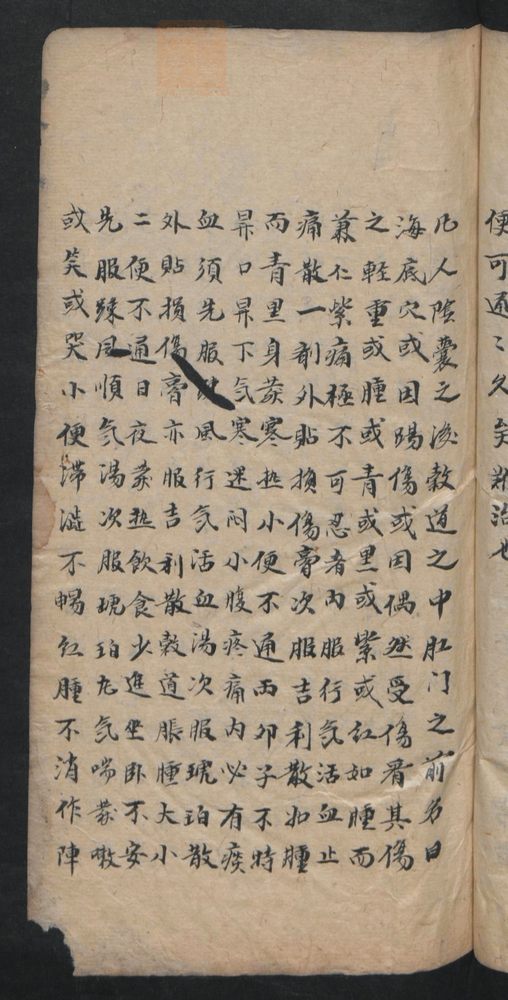 便可通〻久矣難治也
凡人陰囊之後穀道之中肛门之前名曰
海底穴或因踢傷或因偶然受傷看其傷
之輕重或腫或青或黑或紫或紅如腫而
兼仁紫痛極不可忍者内服行气活血止
痛散一剤外貼損傷膏次服吉利散如腫
而青黑身䒱寒热小便不通両夘子不時
昇口昇下气寒迷闷小腹疼痛内必有瘀
血須先服風行气活血湯次服琥珀散
外貼損傷膏亦服吉利散穀道脹腫大小
二便不通日夜䒱热飲食少進坐卧不安
先服疎風順气湯次服琥珀丸气喘䒱嗽
或笑或哭小便滞澁不暢红腫不消作陣